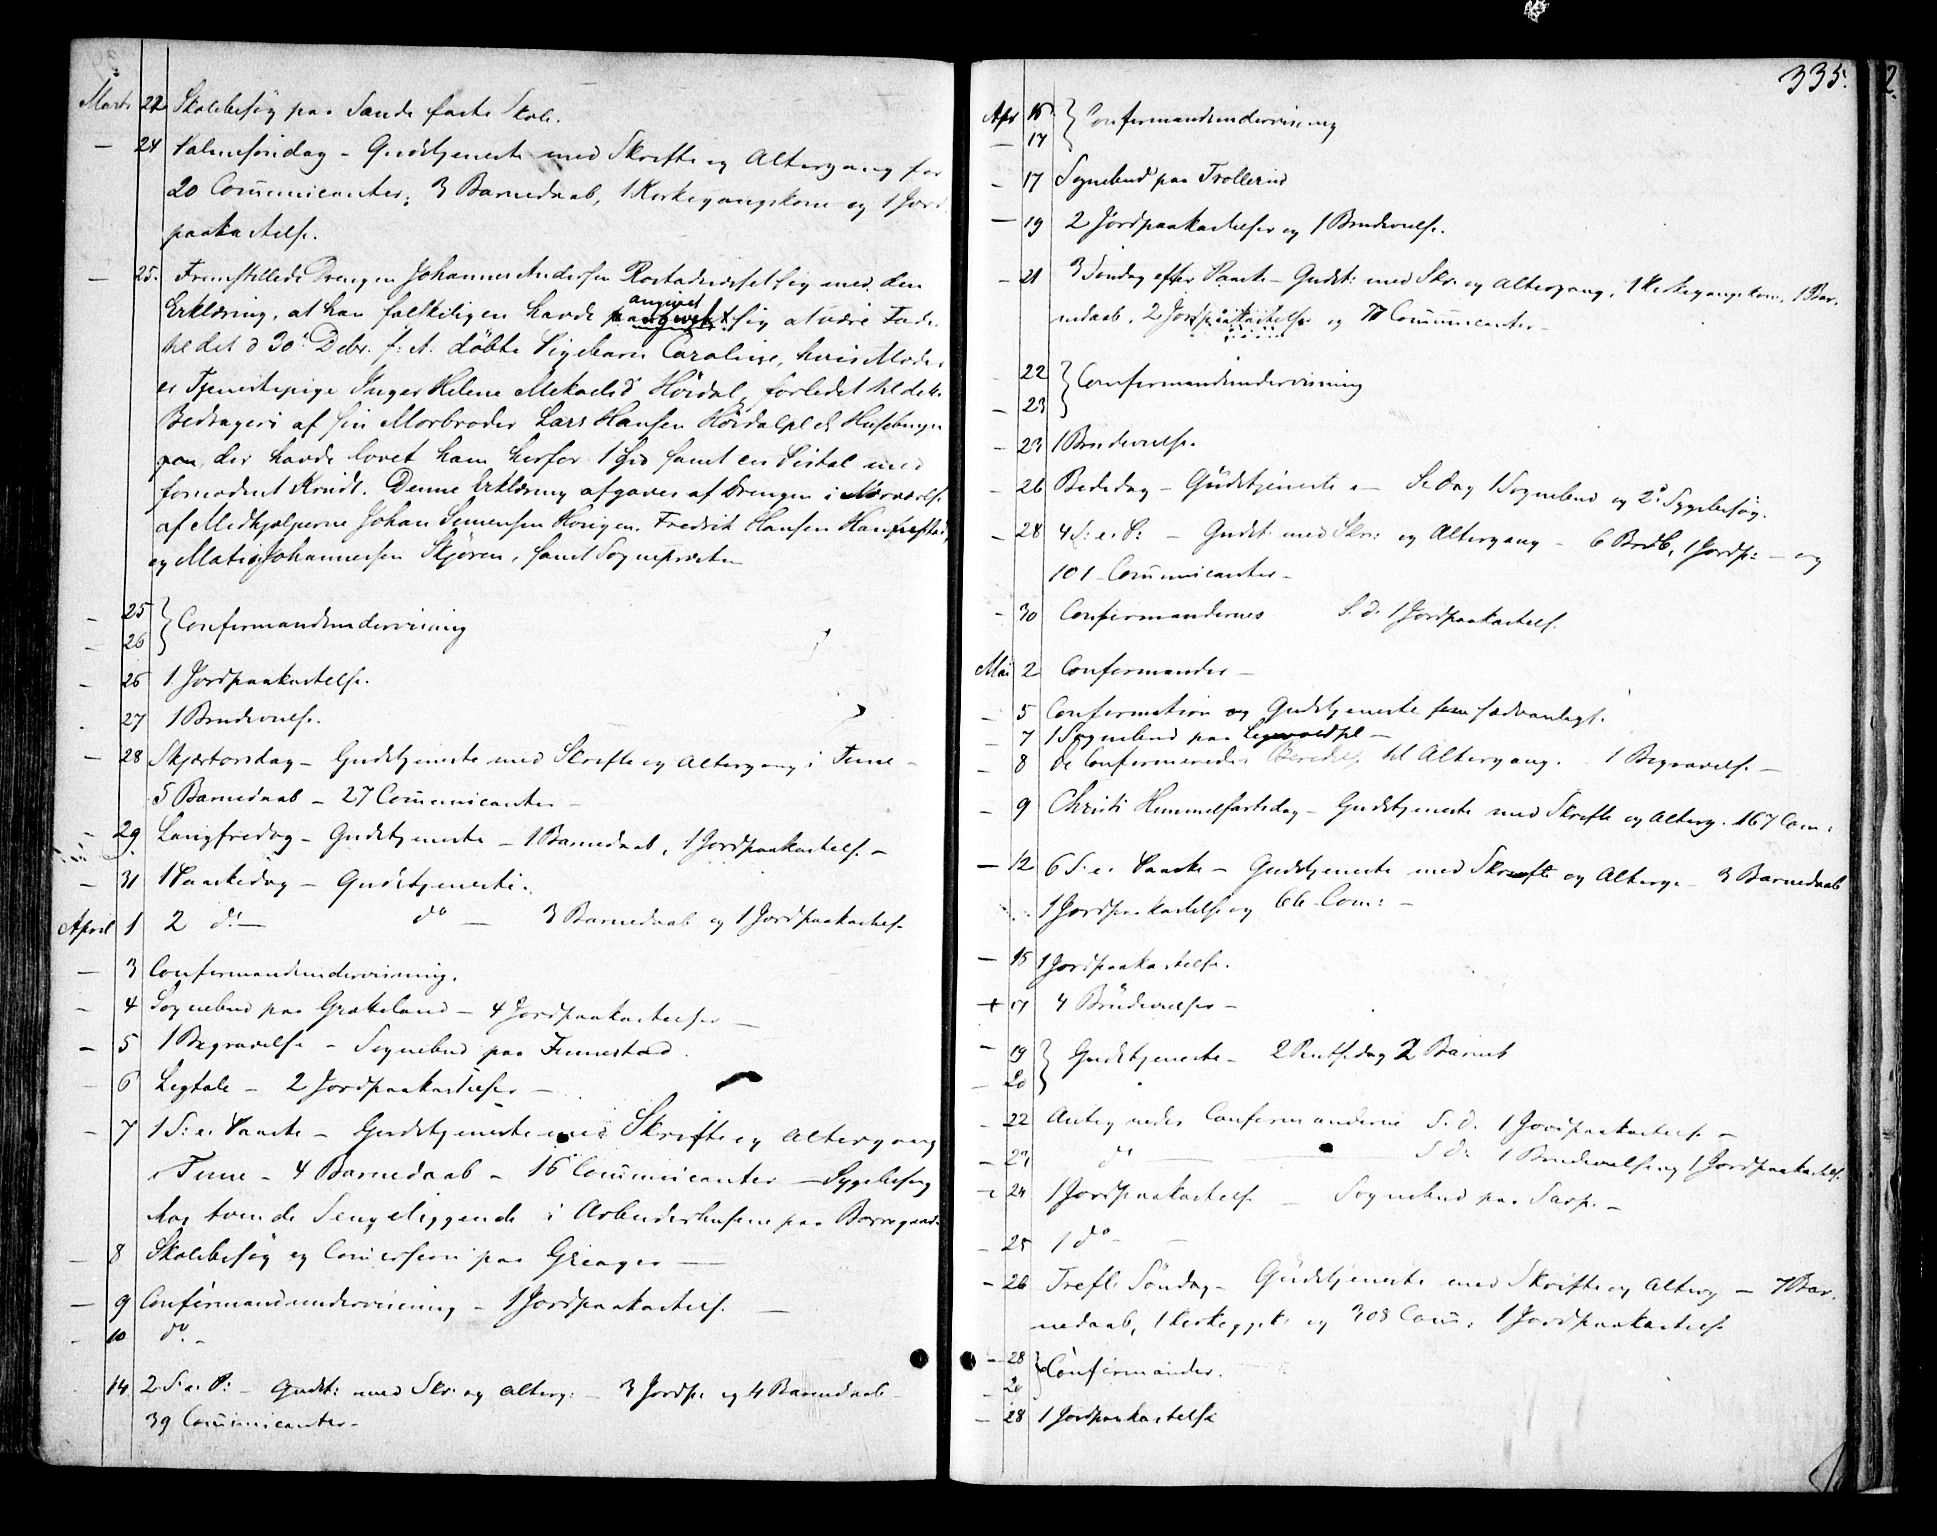 Marts 22 Skolebesøg paa Sande faste Skole.
— 24 Palmesöndag – Gudstjeneste med Skrifte og Altergang for
20 Communicanter, 3 Barnedaab, 1 Kirkegangskone og 1 Jord
paakastelse.
— 25. Fremstillede Drengen Johannes Andersen sig med den
Erklæring, at han falskeligen havde angivet sig at være Fader
til det d 30te Debr. f: A: döbte Pigebarn Caroline, hvis Moder
er Tjenestepige Inger Helene Mekaelsd Hördal, forledet til dette
Bedrageri af sin Morbroder Lars Hansen
der havde lovet ham herfor 1 samt en Pistol med
fornødent Krudt. Denne Erklæring afgaves af Drengen i Nærværelse
af Medhjælperne Johan Simensen Fredrik Hansen
og Mathias Johannessen Skjøren, samt Sognepræsten
— 25
— 26 } Confirmandundervisning
— 26 1 Jordpaakastelse.
27 1 Brudevielse.
— 28 Skjærtorsdag – Gudstjeneste med Skrifte og Altergang i Tune –
5 Barnedaab – 27 Communicanter –
— 29. Langfredag – Gudstjeneste – 1 Barnedaab, 1 Jordpaakastelse –
— 31 1 Paaskedag – Gudstjeneste.
April 1 2 do — do — 3 Barnedaab og 1 Jordpaakastelse
— 3 Confirmandundervisning.
— 4 Sognebud paa Grøtteland – 4 Jordpaakastelser —
— 5 1 Begravelse – Sognebud paa Tunestad.
— 6 Ligtale – 2 Jordpaakastelser —
— 7 1 S: e. Paaske – Gudstjeneste med Skrifte og Altergang
i Tune – 4 Barnedaab – 16 Communicanter — Sygebesøg
hos tvende Sengeliggende i Arbeiderhusene paa Borregaard
— 8 Skolebesøg og Commission paa Greager —
— 9 Confirmandundervisning – 1 Jordpaakastelse —
— 10 do –
14 2 S: e. P: – Gudst: med Skr: og Alterg: – 3 Jordp. og 4 Barnedaab –
39 Communicanter –
335.
Apr 15
— 17 } Confirmandundervisning
— 17 Sognebud paa Trollerud
— 19 2 Jordpaakastelser og 1 Brudevielse.
— 21 3 Söndag efter Paaske – Gudst: med Skr: og Altergang, 1 Kirkegangskone, 1 Bar-
nedaab, 2 Jordpaakastelse og 77 Communicanter –
22
— 23 } Confirmandundervisning
— 23 1 Brudevielse.
— 26 Bededag – Gudstjeneste – S. Dag 1 Sognebud og 2 Sygebesøg.
— 28 4 S: e. P: – Gudst: med Skr: og Altergang – 6 Brdb, 1 Jordp: – og
101 Communicanter –
— 30 Confirmandernes S. d. 1 Jordpaakastelse.
Mai 2 Confirmander —
— 5 Confirmation og Gudstjeneste som sædvanligt.
— 7 1 Sognebud paa —
— 8 De Confirmeredes til Altergang. – 1 Begravelse. —
— 9 Christi Himmelfartsdag – Gudstjeneste med Skrifte og Alterg. 167 Com:
— 12 6 S: e. Paaske – Gudstjeneste med Skrifte og Alterg. – 3 Barnedaab
1 Jordpaakastelse og 66 Com: –
— 15 1 Jordpaakastelse.
+ 17 4 Brudevielser –
— 19
— 20 } Gudstjeneste – 2 Pintsedag 2 Barnedb
— 22 Antegnedes Confirmanderne S. d. 1 Jordpaakastelse —
— 23 do — S. d. 1 Brudevielse og 1 Jordpaakastelse
— 24 1 Jordpaakastelse – Sognebud paa Sarp. –
— 25 1 do –
— 26 Trefl: Söndag – Gudstjeneste med Skrifte og Alterg — 7 Bar-
nedaab, 1 og 308 Com:, 1 Jordpaakastelse
— 28
— 20 } Confirmander.
— 28 1 Jordpaakastelse